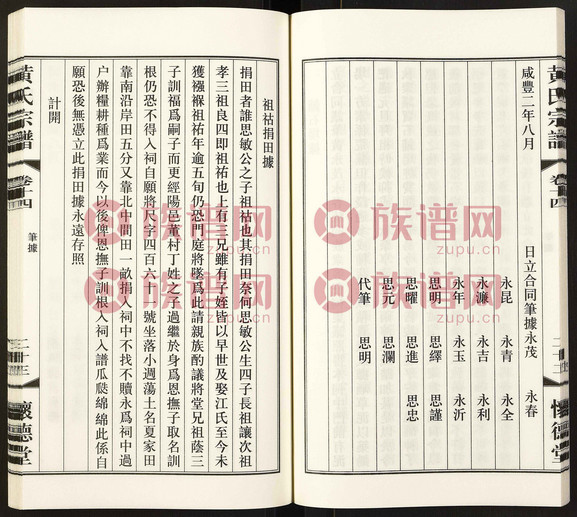 黃氏宗譜
卷十四
二十二
懷德堂
咸豐二年八月
日立合同筆據永茂 永春
永昆 永青 永全
永濂 永吉 永利
永年 永玉 永沂
思明 思繹 思謹
思曜 思進 思忠
思元 思瀾
代筆 思明
祖祜捐田據
捐田者誰思敏公之子祖祜也其捐田奈何思敏公生四子長祖讓次祖
孝三祖良四即祖祜也上有三兄雖有子姪皆以早世及娶江氏至今未
獲襁褓祖祐年逾五旬仍恐門庭將墜爲此請親族酌議將堂兄祖蔭三
子訓福爲嗣子而更經陽邑董村丁姓之子過繼於身爲恩撫子取名訓
根仍恐不得入祠自願將尺字四百六十 號坐落小週蕩土名夏家田
靠南沿岸田五分又靠北中間田一畝捐入祠中不找不贖永爲祠中過
户辦糧耕種爲業而今以後俾恩撫子訓根入祠入譜瓜瓞綿綿此係自
願恐後無憑立此捐田據永遠存照
計開
黃氏宗譜
卷十四
筆據
二十三
懷德堂
族谱网
zupu.cn
族谱网
zupu.cn
族谱网
zupu.cn
族谱网
zupu.cn